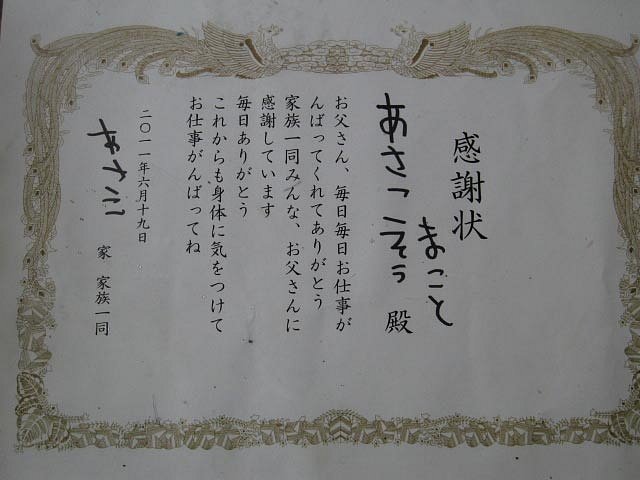 感謝状
まこと
あさこそう 殿
お父さん、毎日毎日お仕事が
んばってくれてありがとう
家族一同みんな、お父さんに
感謝しています
毎日ありがとう
これからも身体に気をつけて
お仕事がんばってね
二〇一一年六月十九日
あさこ 家 家族一同